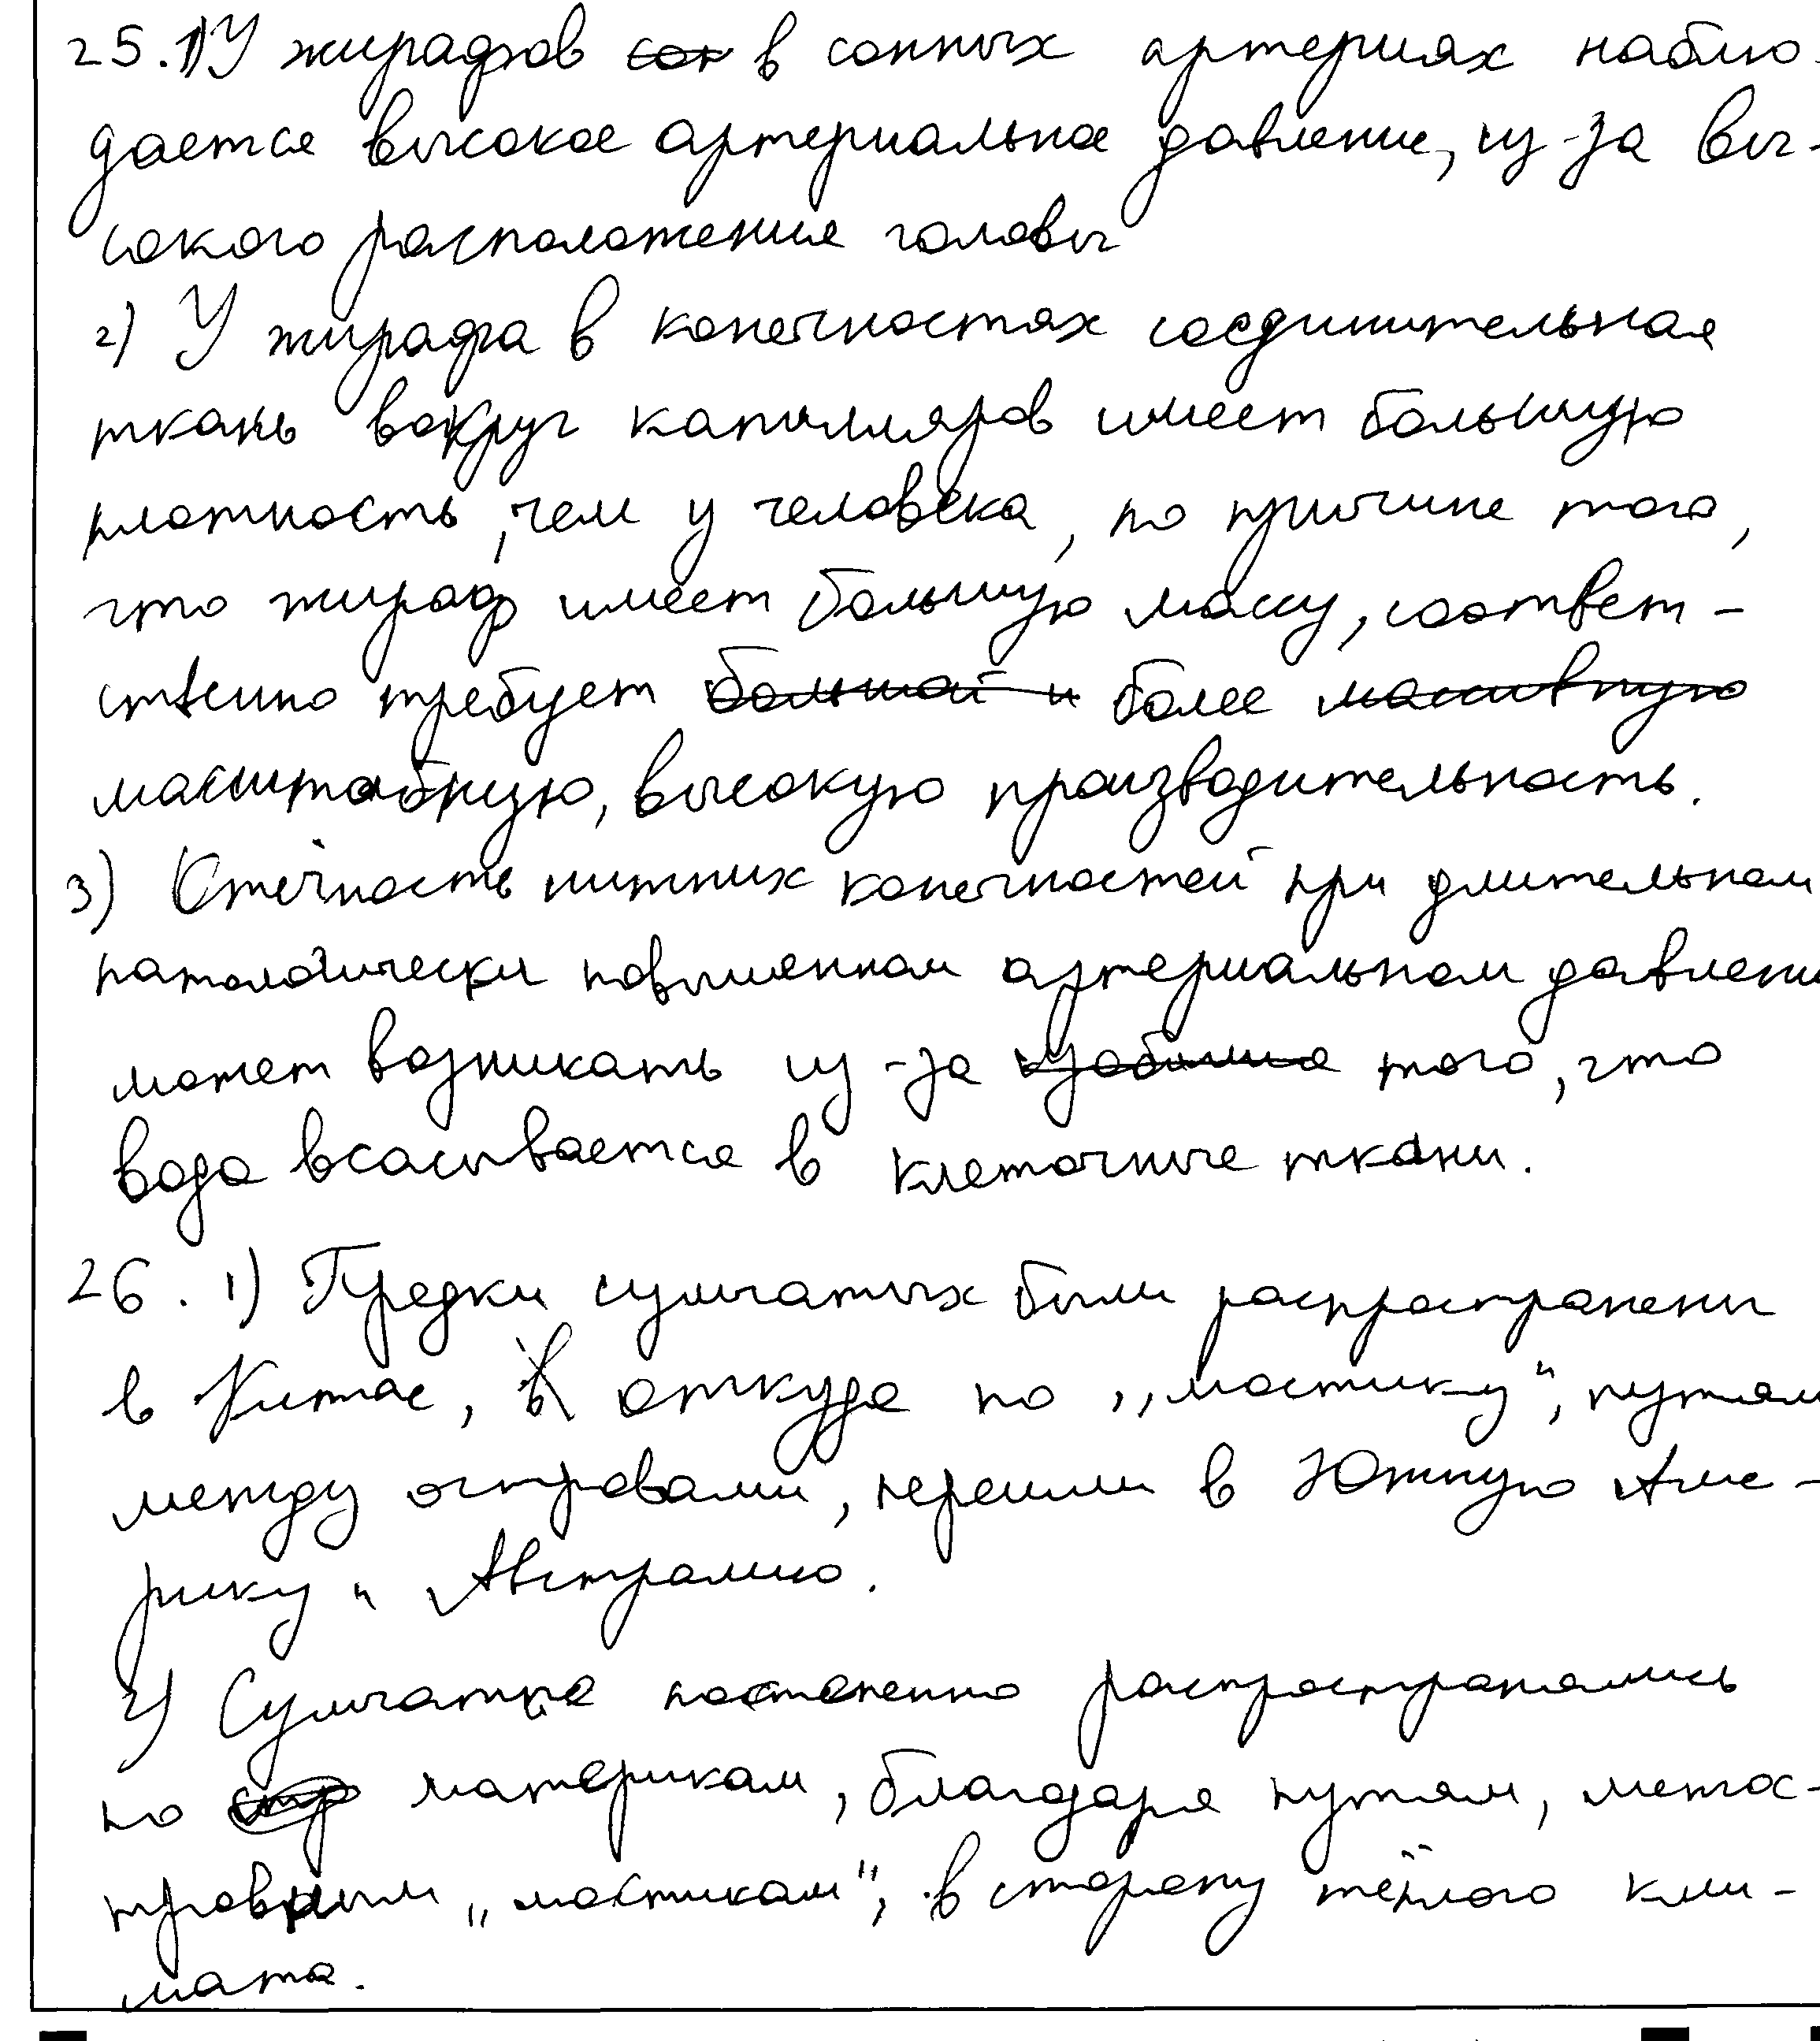 25. 1) У жирафов в сонных артериях наблю-
дается высокое артериальное давление, из-за вы-
сокого расположения головы
2) У жирафа в конечностях соединительная
ткань вокруг капилляров имеет большую
плотность, чем у человека, по причине того,
что жираф имеет большую массу, соответ-
ственно требует более
масштабную, высокую производительность.
3) Отёчность нижних конечностей при длительном
патологически повышенном артериальном давлени
может возникать из-за того, что
вода всасывается в клеточные ткани.
26. 1) Предки сумчатых были распространены
в Китае, откуда по „мостику“, путям
между островами, перешли в Южную Аме-
рику и Австралию.
2) Сумчатые постепенно распространялись
по материкам, благодаря путям, межос-
тровным „мостикам“, в сторону тёплого кли-
мата.